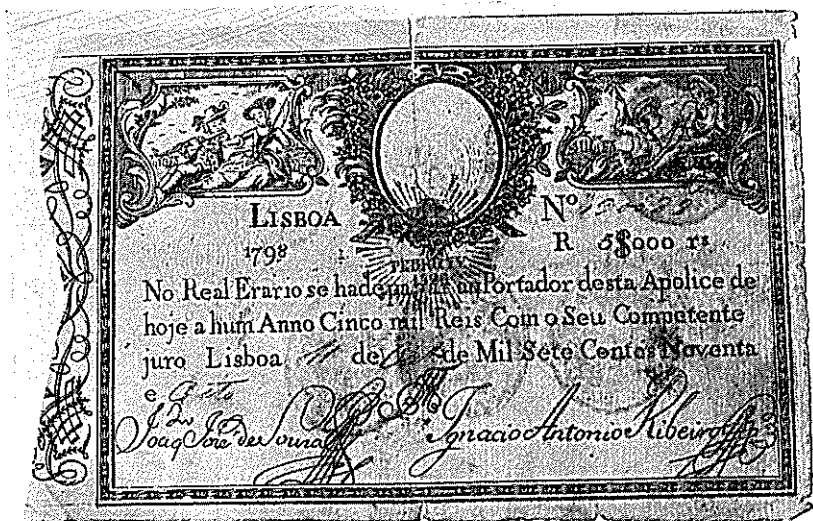 LISBOA
Nº
1798
R 5$000 rs
No Real Erario se hade pagar ao Portador desta Apolice de
hoje a hum Anno Cinco mil Reis Com o Seu Competente
juro Lisboa de de Mil Sete Centos Noventa
e Oito
Joaq José de Souza Ignacio Antonio Ribeiro